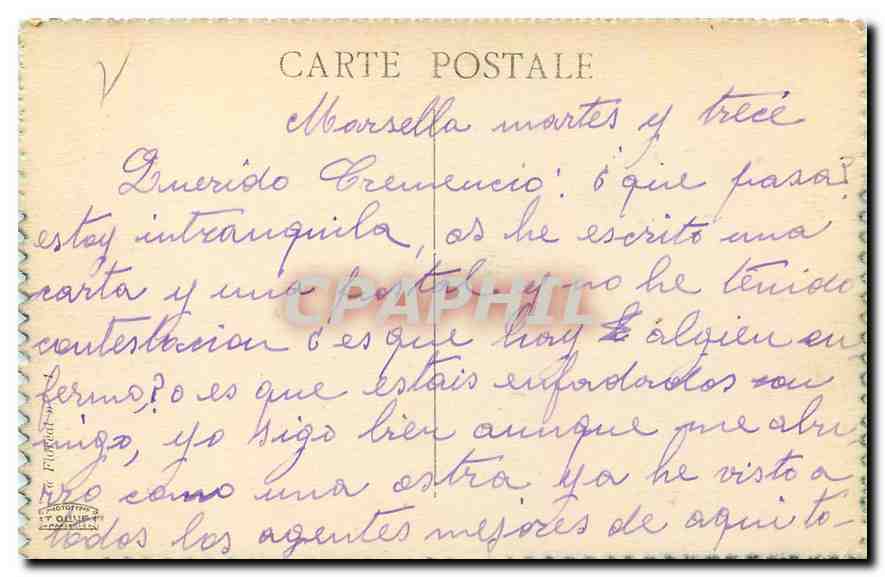 CARTE POSTALE
Marsella martes y trece
Querido Cremencio! ó que pasa?
estoy intranquila, os he escrito una
carta y una postal y no he tenido
contestacion ó es que hay algien en
fermo,? o es que estais enfadados con
migo, yo sigo bien aunque me abu
rro como una ostra ya he visto a
todos los agentes mejores de aqui to-
CPAPHIL